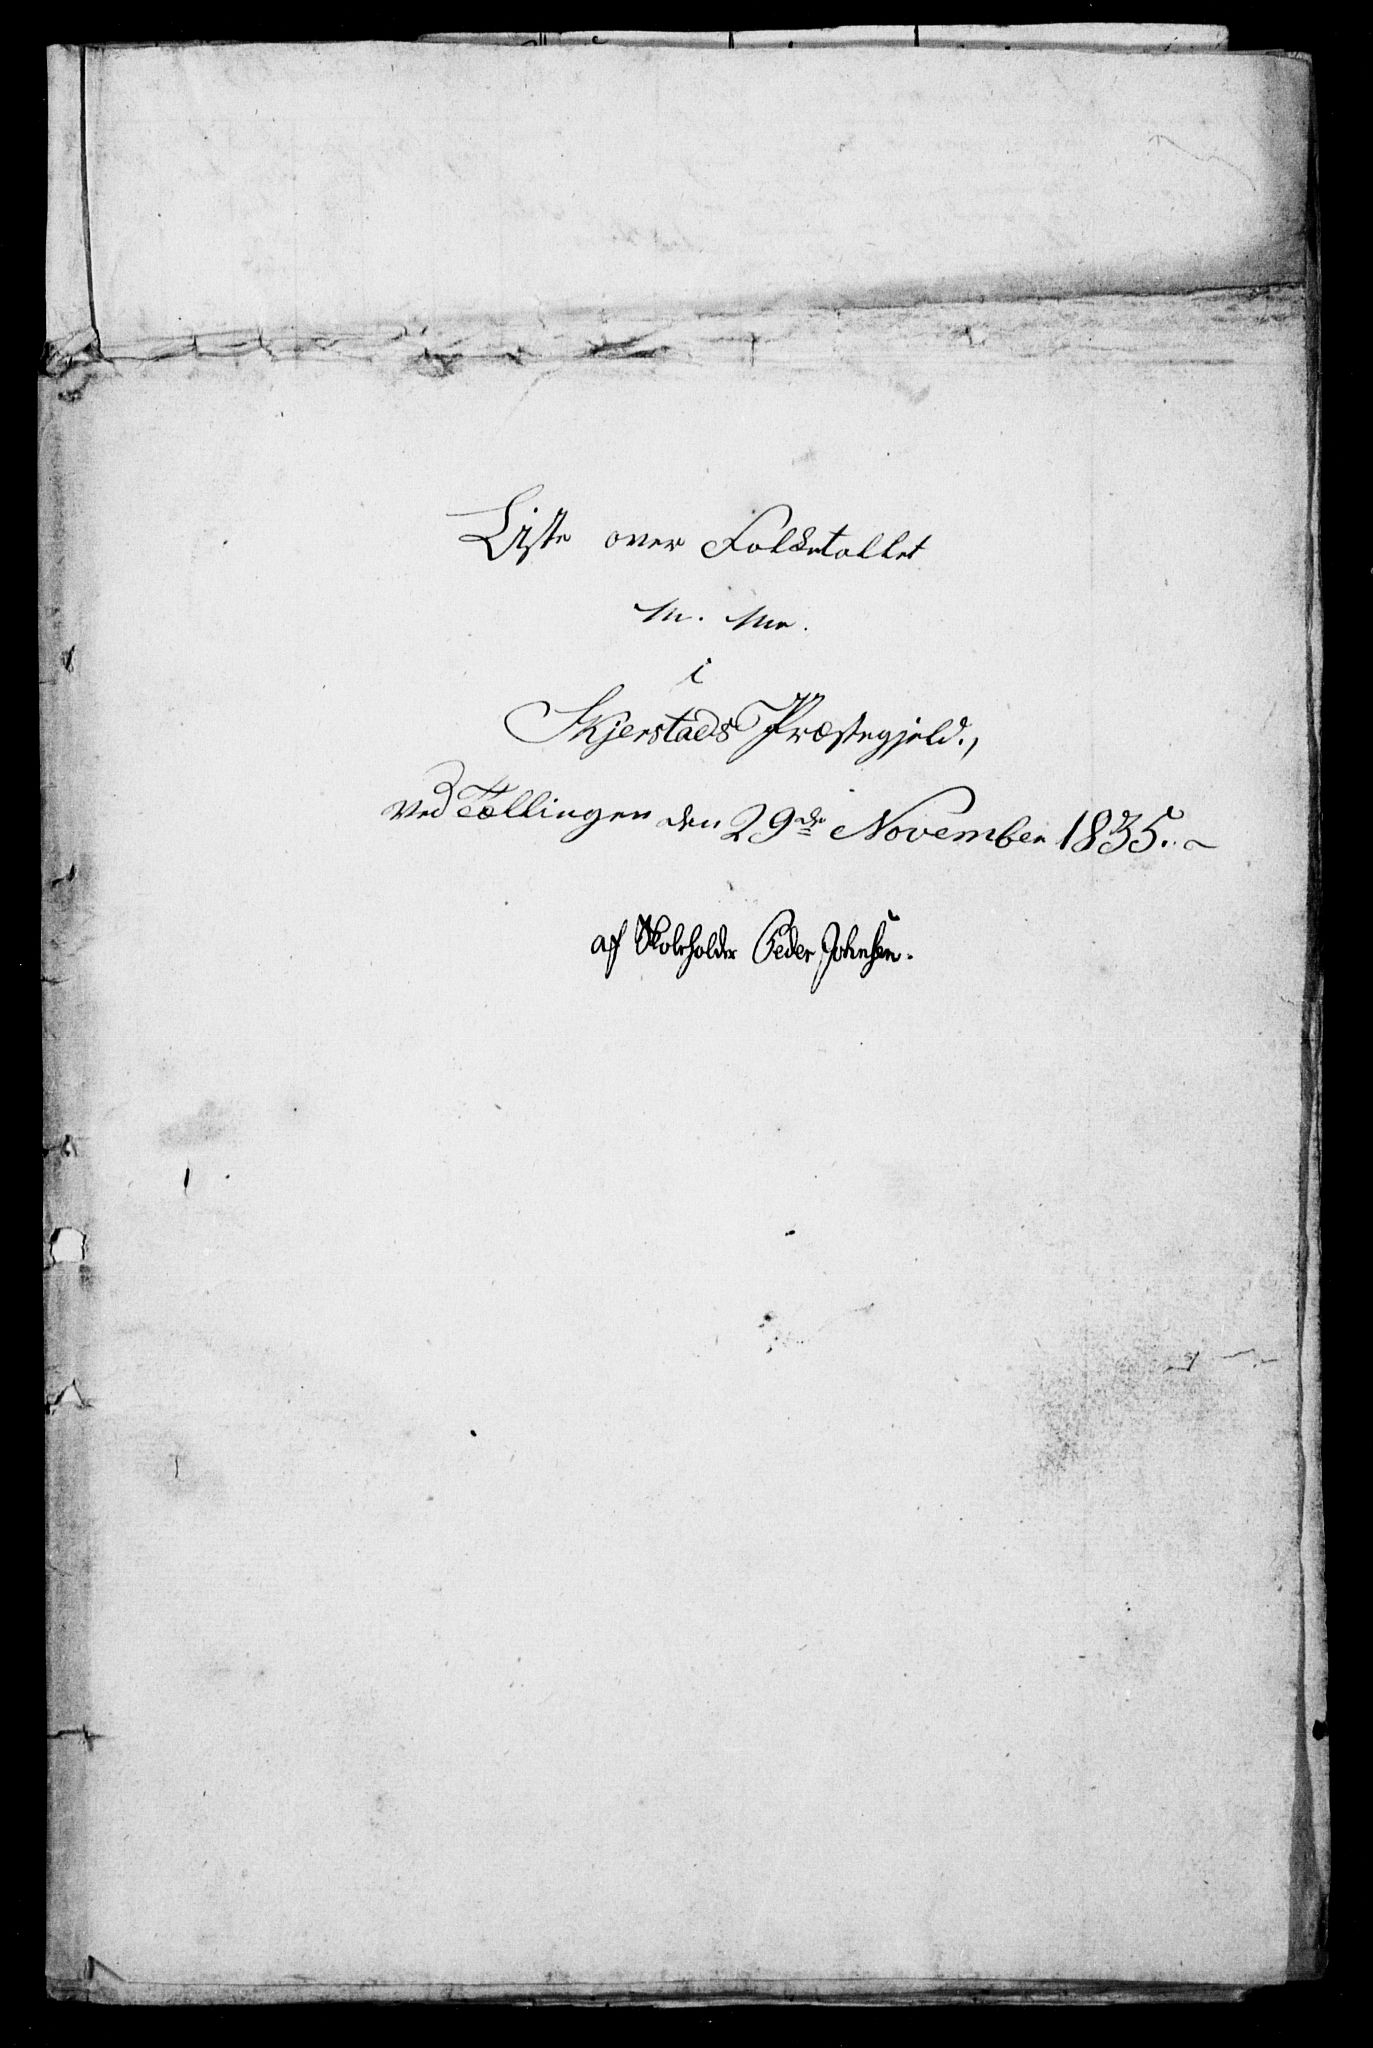 Liste over Folketallet
m. m.
i
Skjerstads Præstegjeld.,
ved Tællingen den 29de November 1835.
af Skoleholder Peder Johnsen.